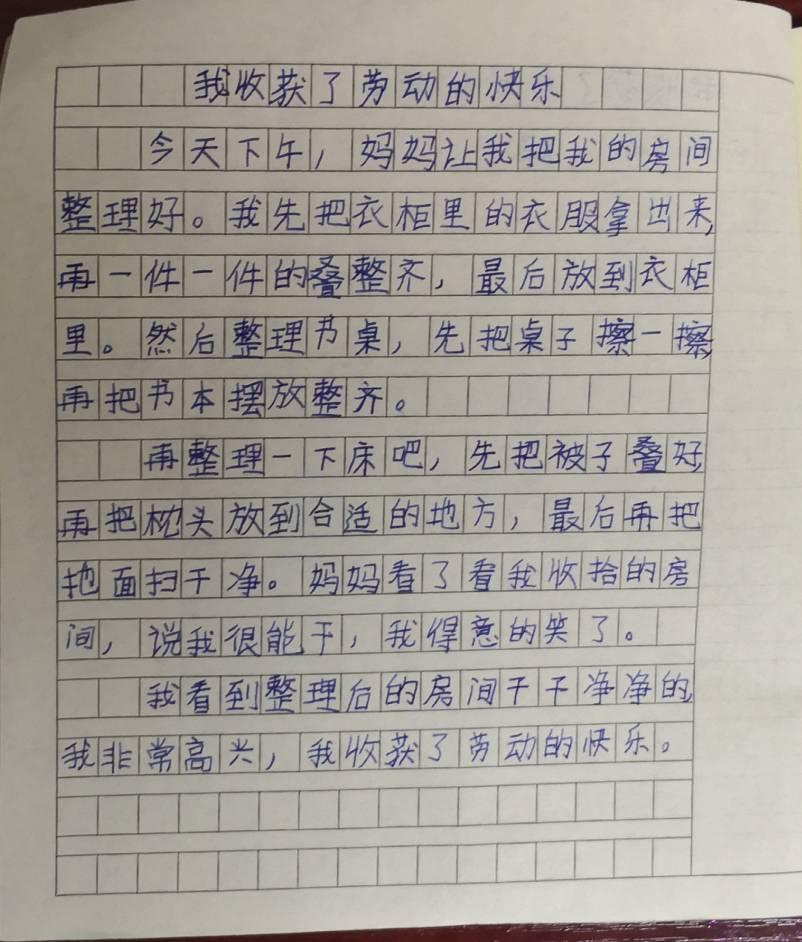 我收获了劳动的快乐
今天下午，妈妈让我把我的房间
整理好。我先把衣柜里的衣服拿出来，
再一件一件的叠整齐，最后放到衣柜
里。然后整理书桌，先把桌子擦一擦，
再把书本摆放整齐。
再整理一下床吧，先把被子叠好，
再把枕头放到合适的地方，最后再把
地面扫干净。妈妈看了看我收拾的房
间，说我很能干，我得意的笑了。
我看到整理后的房间干干净净的，
我非常高兴，我收获了劳动的快乐。